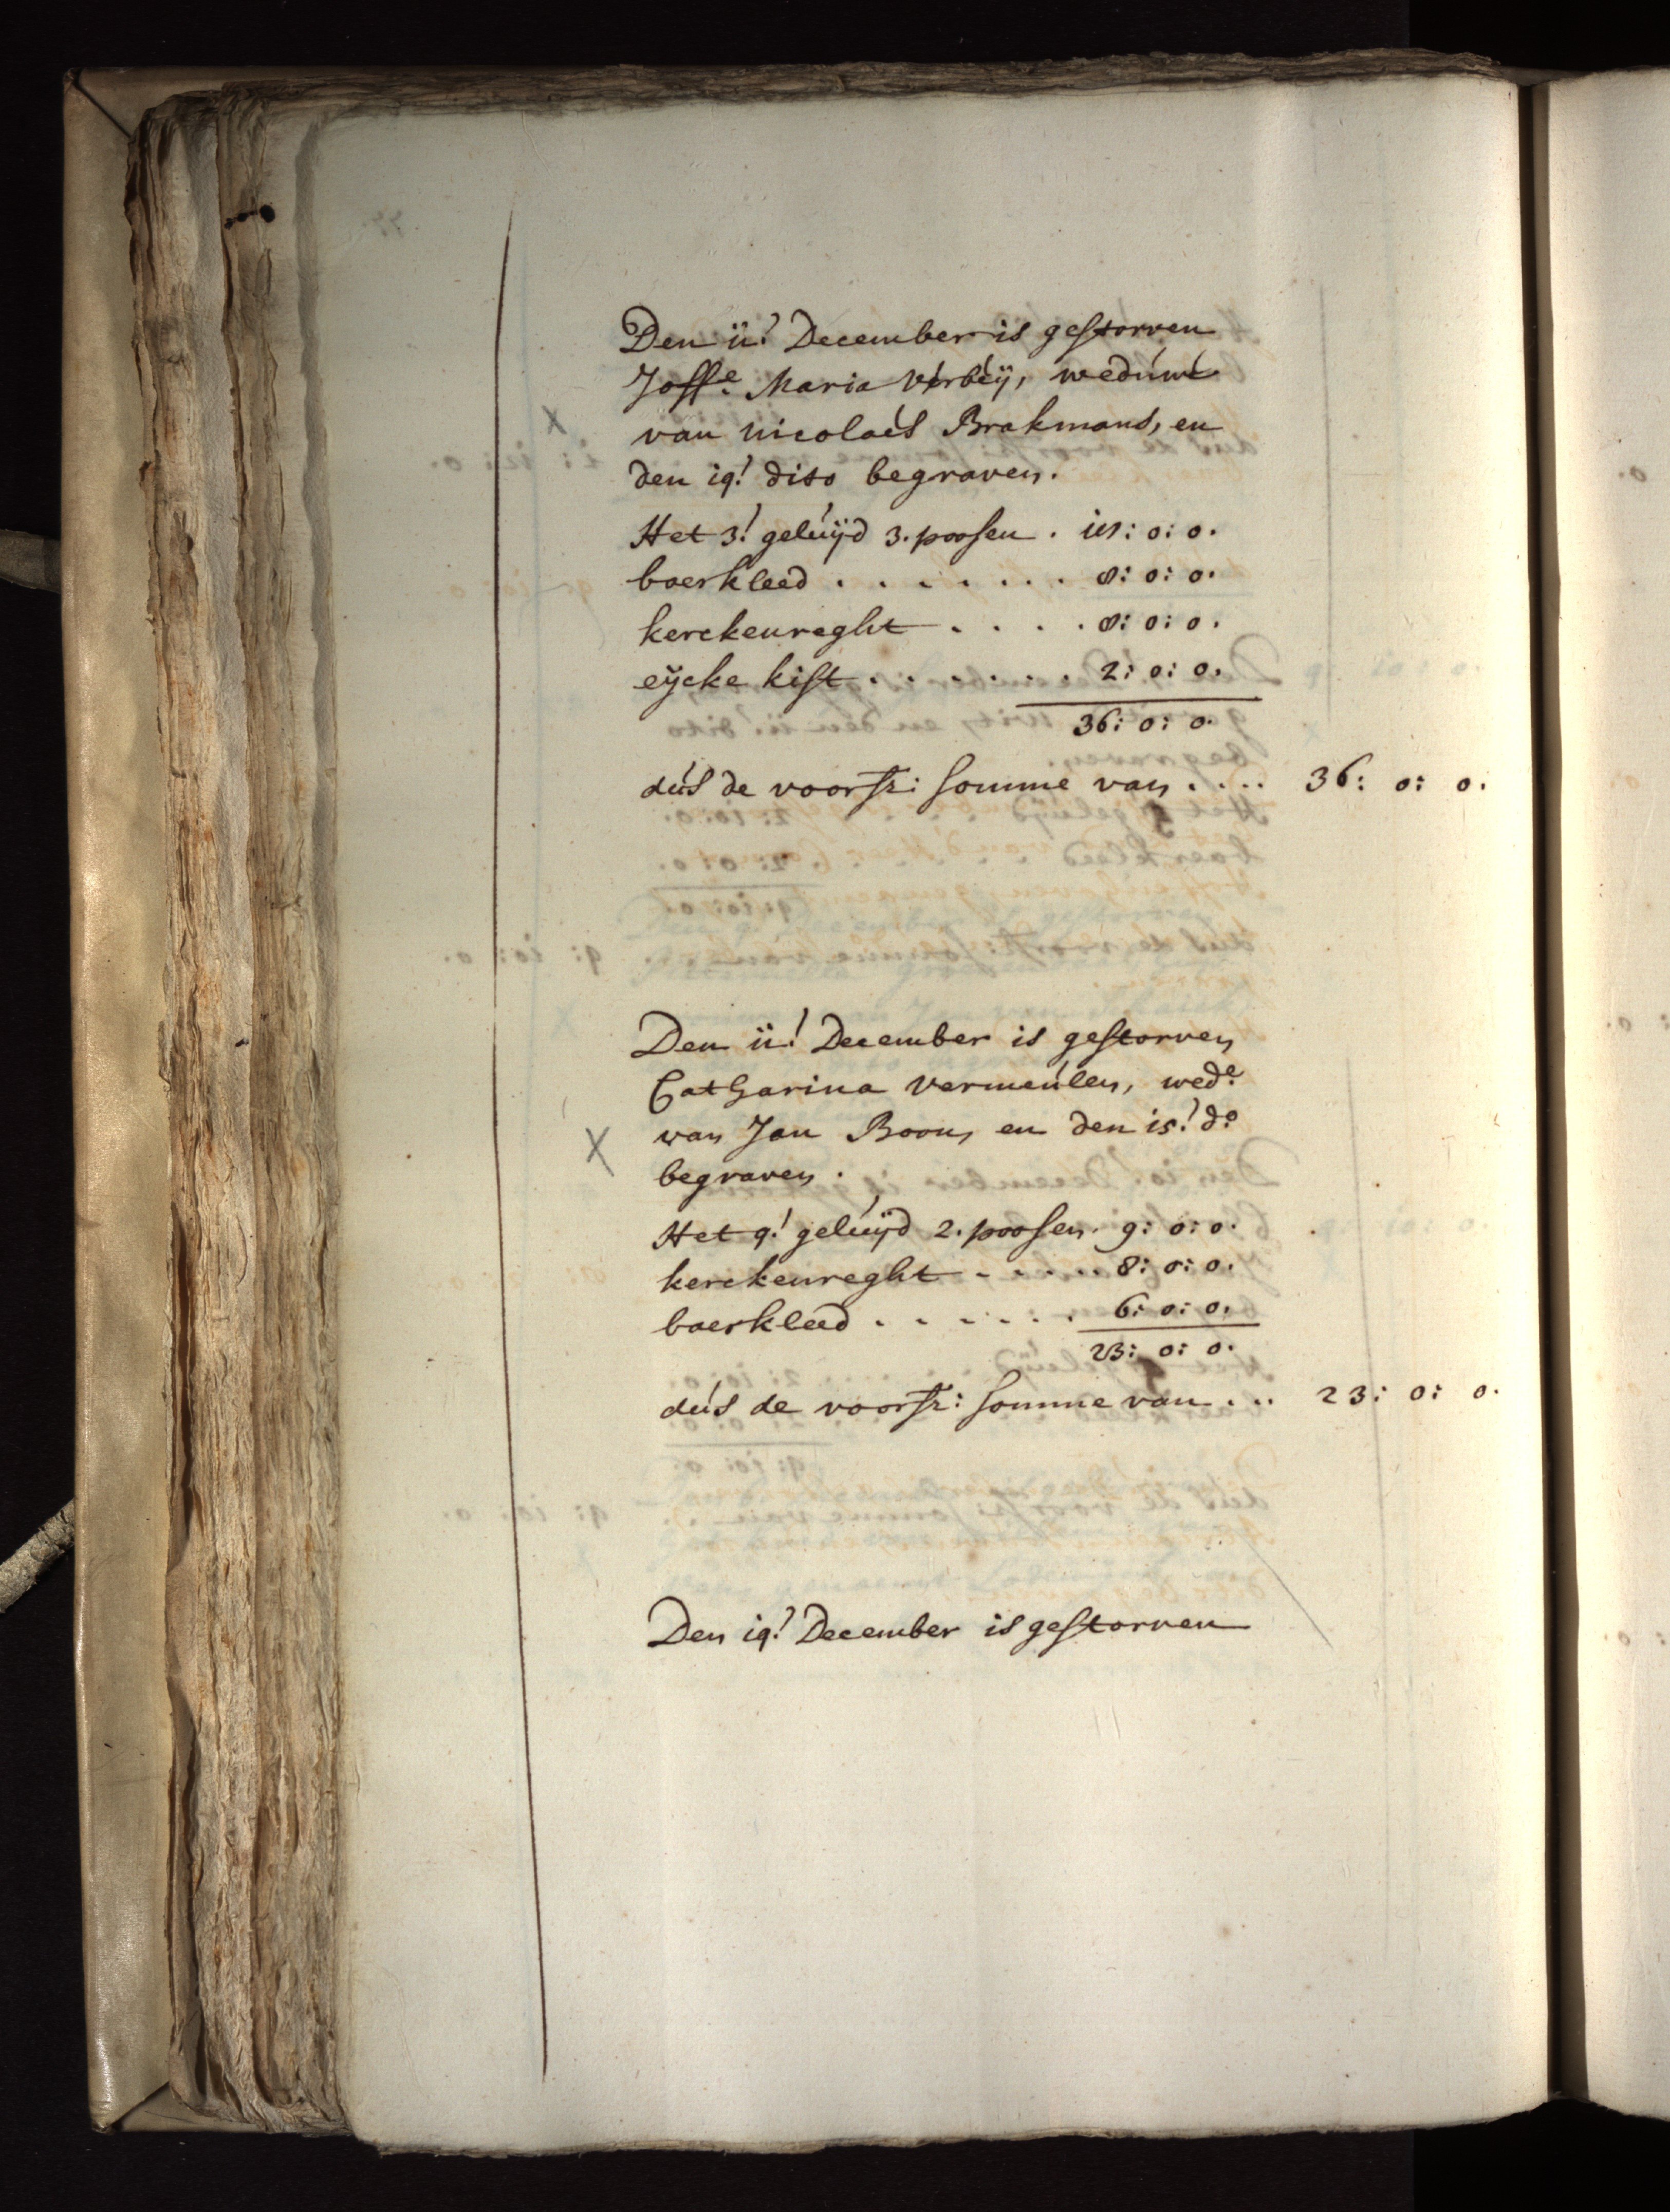 Den ii! December is gestorven
Joffe. Maria Verbeÿ, weduwe
van Nicolaes Brakmans, en
den i4! dito begraven.
Het 3! geluÿd 3. poosen . i8: 0: 0.
baerkleed . . . . . . . 8: 0: 0.
kerckenreght . . . . 8: 0: 0.
eÿcke kist . . . . . . . 2: 0: 0.
36: 0: 0.
dus de voorsz: somme van . . . . 36: 0: 0.
Den ii! December is gestorven
Catharina Vermeulen, wede.
van Jan Boon, en den i5! do.
begraven.
Het 4! geluÿd 2. poosen. 9: 0: 0.
kerckenreght . . . . . 8: 0: 0.
baerkleed . . . . . . . 6: 0: 0.
23: 0: 0.
dus de voorsz: somme van . . . 23: 0: 0.
Den i4! December is gestorven